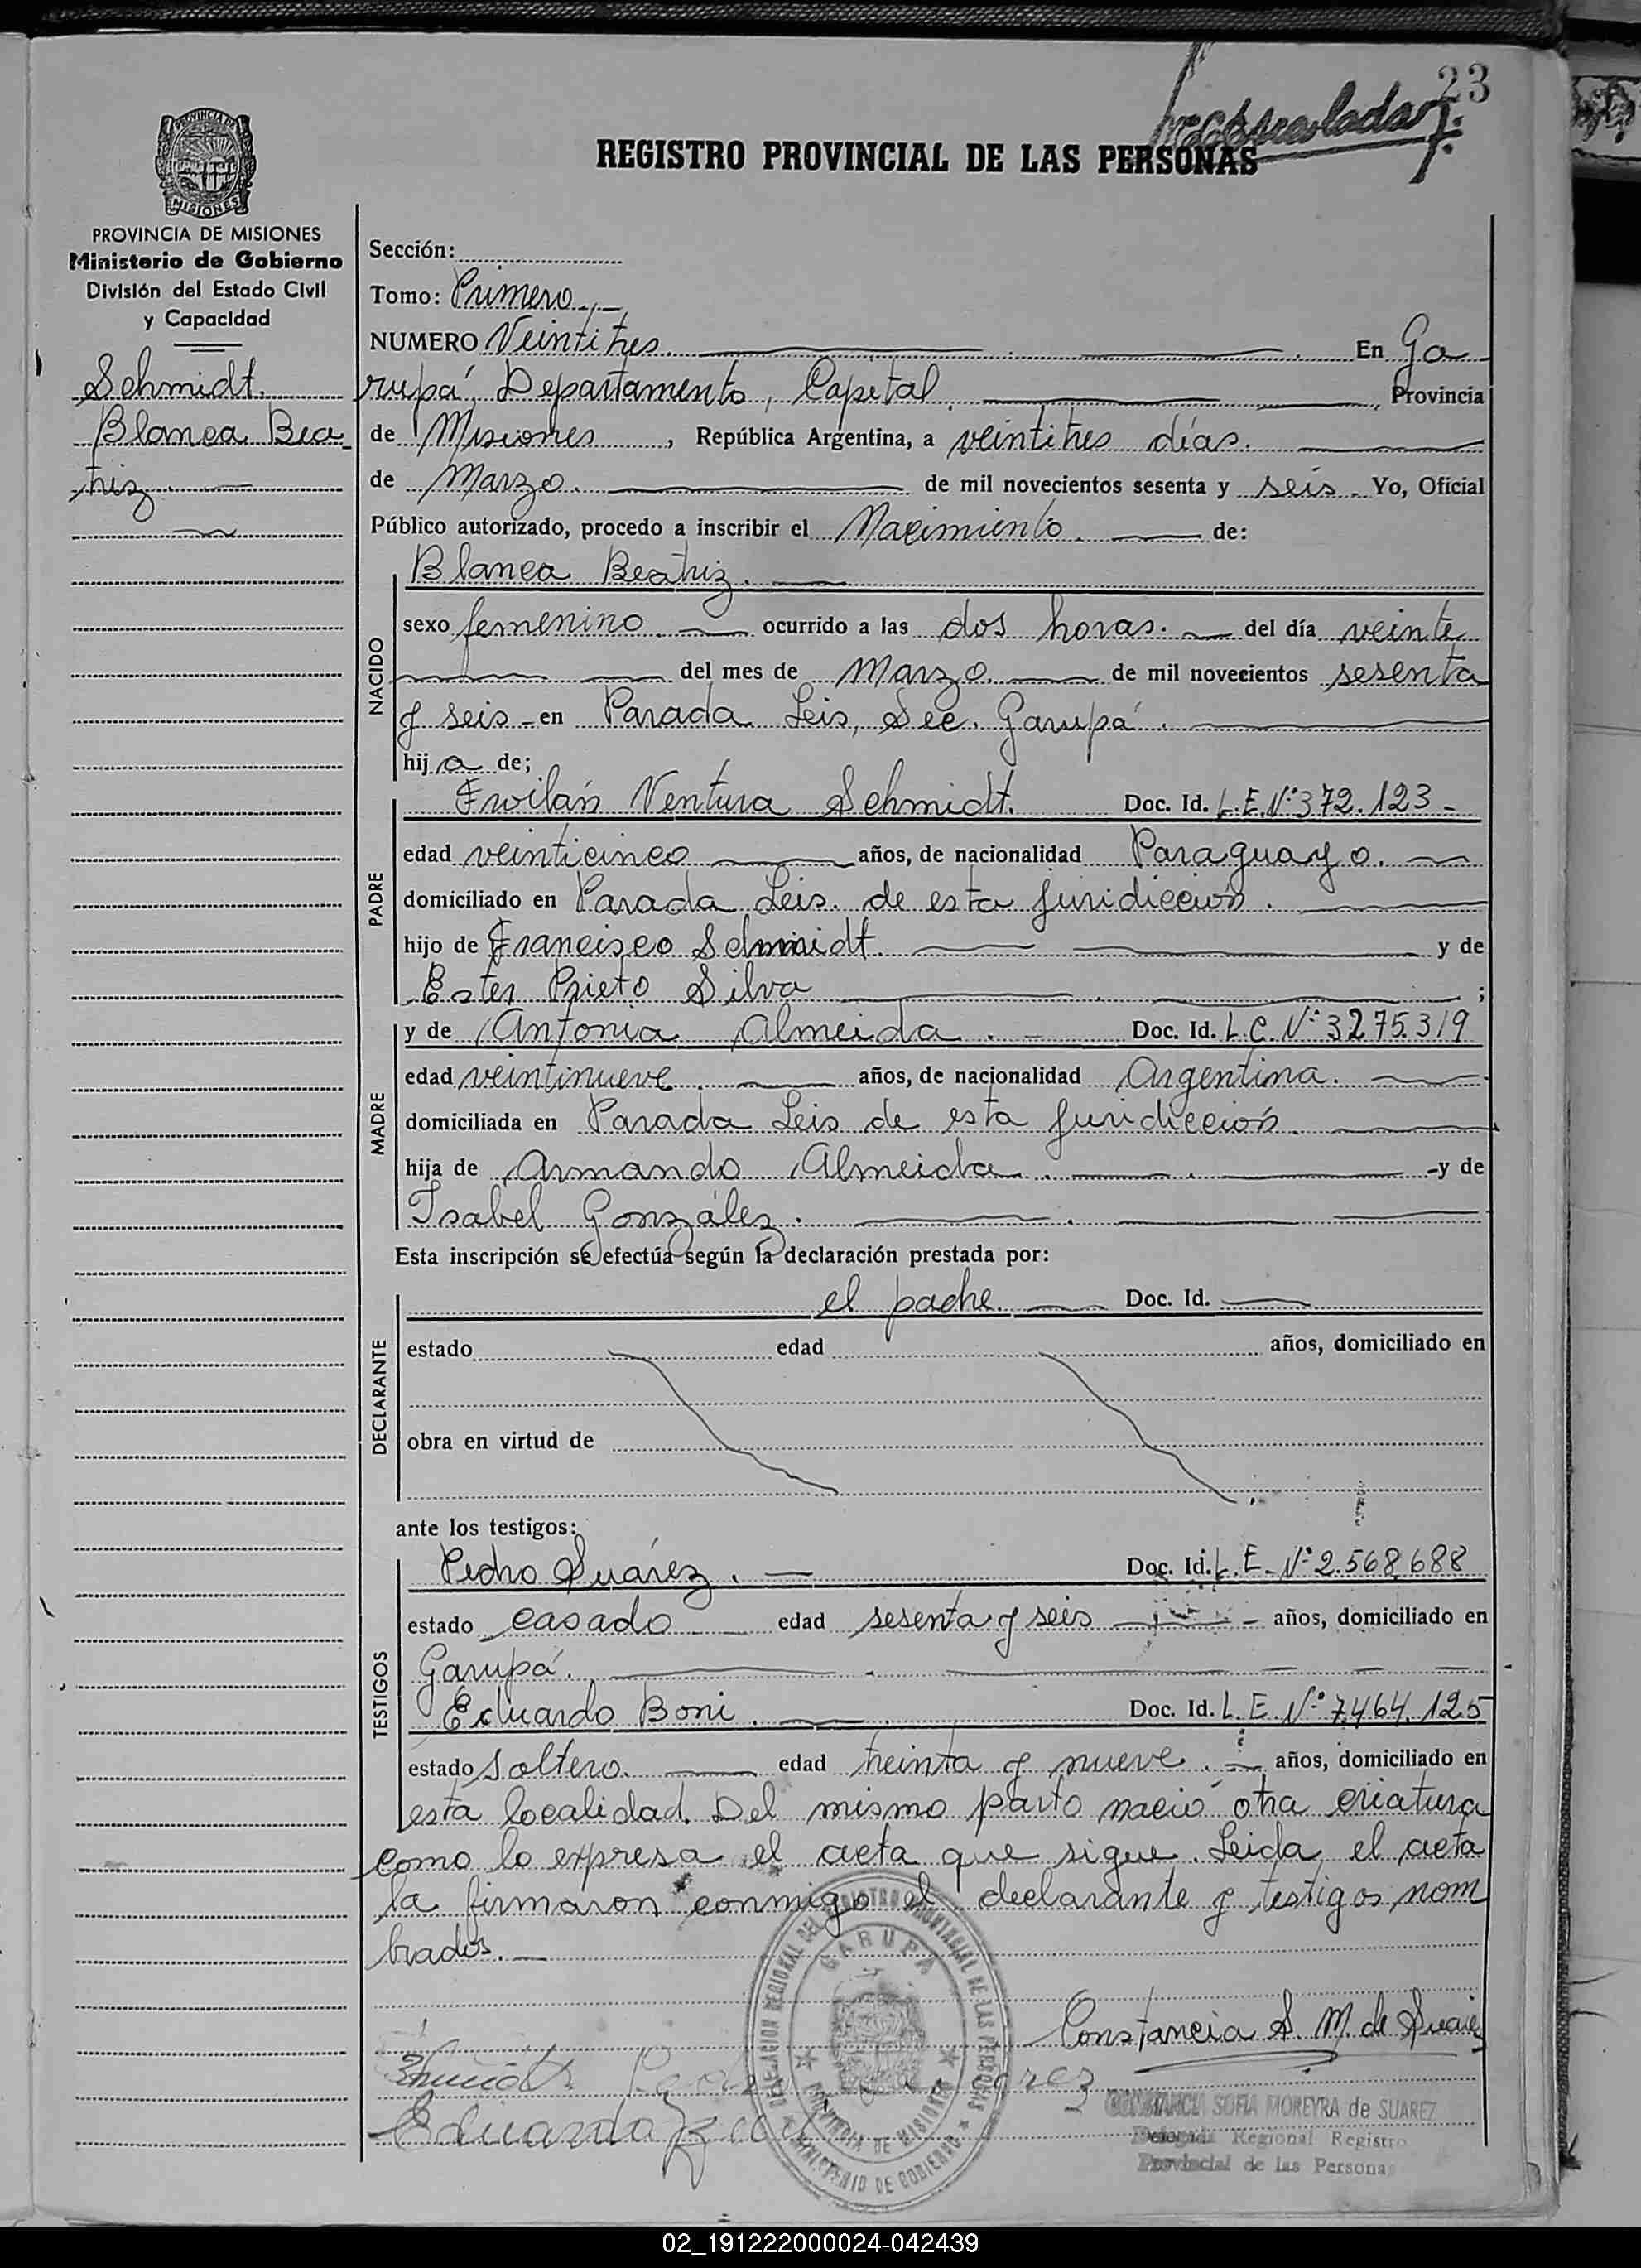 23
REGISTRO PROVINCIAL DE LAS PERSONAS
PROVINCIA DE MISIONES
Ministerio de Gobierno
División del Estado Civil
y Capacidad
Schmidt.
Blanca Bea-
triz.
Sección:
Tomo: Primero.
NUMERO Veintitres. En Ga
rupá, Departamento, Capital. Provincia
de Misiones, República Argentina, a veintitres días.
de Marzo. de mil novecientos sesenta y seis. Yo, Oficial
Público autorizado, procedo a inscribir el Nacimiento. de:
NACIDO
Blanca Beatriz.
sexo femenino. ocurrido a las dos horas. del día veinte
del mes de Marzo. de mil novecientos sesenta
y seis - en Parada Leis, Sec. Garupá.
hija de;
PADRE
Froilán Ventura Schmidt. Doc. Id. L.E. Nº 372.123 -
edad veinticinco años, de nacionalidad Paraguayo.
domiciliado en Parada Leis. de esta juridicción.
hijo de Francisco Schmidt. y de
Ester Prieto Silva ;
MADRE
y de Antonia Almeida. Doc. Id. L.C. Nº 3275.319
edad veintinueve. años, de nacionalidad Argentina.
domiciliada en Parada Leis de esta juridicción.
hija de Armando Almeida. -y de
Isabel González.
Esta inscripción se efectúa según la declaración prestada por:
DECLARANTE
el padre. Doc. Id.
estado edad años, domiciliado en
obra en virtud de
ante los testigos:
TESTIGOS
Pedro Suárez. Doc. Id. L.E. Nº 2.568.688
estado casado edad sesenta y seis años, domiciliado en
Garupá.
Eduardo Boni. Doc. Id. L.E. Nº 7.464.125
estado soltero. edad treinta y nueve. años, domiciliado en
esta localidad. Del mismo parto nació otra criatura
como lo expresa el acta que sigue. Leida el acta
la firmaron conmigo el declarante y testigos nom
brados.
Constancia S. M. de Suarez
DELEGACION REGIONAL DEL REGISTRO PROVINCIAL DE LAS PERSONAS
GARUPA
PROVINCIA DE MISIONES
MINISTERIO DE GOBIERNO
CONSTANCIA SOFIA MOREYRA de SUAREZ
Delegada Regional Registro
Provincial de las Personas
Eduardo
02_191222000024-042439